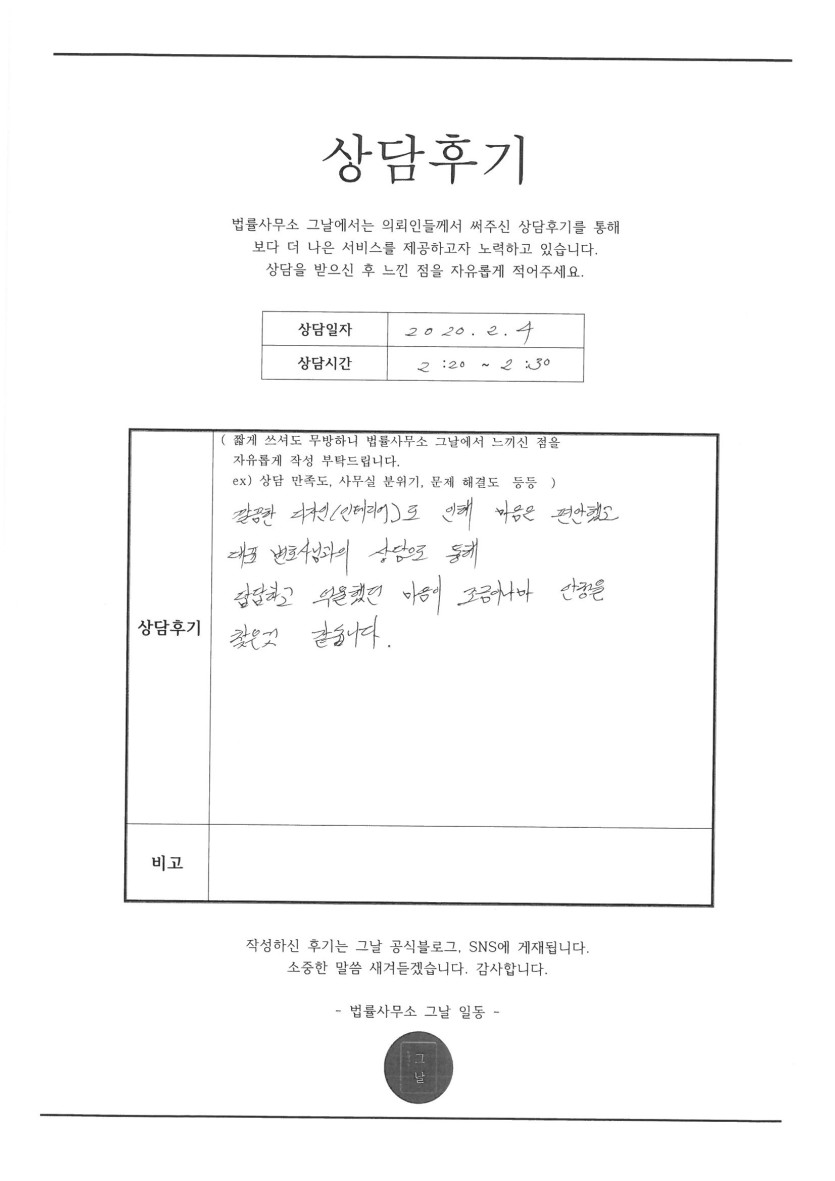 상담후기
법률사무소 그날에서는 의뢰인들께서 써주신 상담후기를 통해
보다 더 나은 서비스를 제공하고자 노력하고 있습니다.
상담을 받으신 후 느낀 점을 자유롭게 적어주세요.
상담일자 2020. 2. 4
상담시간 2:20 ~ 2:30
( 짧게 쓰셔도 무방하니 법률사무소 그날에서 느끼신 점을
자유롭게 작성 부탁드립니다.
ex) 상담 만족도, 사무실 분위기, 문제 해결도 등등 )
깔끔한 디자인(인테리어)로 인해 마음은 편안했고
대표 변호사님과의 상담으로 통해
답답하고 억울했던 마음이 조금이나마 안정을
상담후기
찾은것 같습니다.
비고
작성하신 후기는 그날 공식블로그, SNS에 게재됩니다.
소중한 말씀 새겨듣겠습니다. 감사합니다.
- 법률사무소 그날 일동 -
그
날